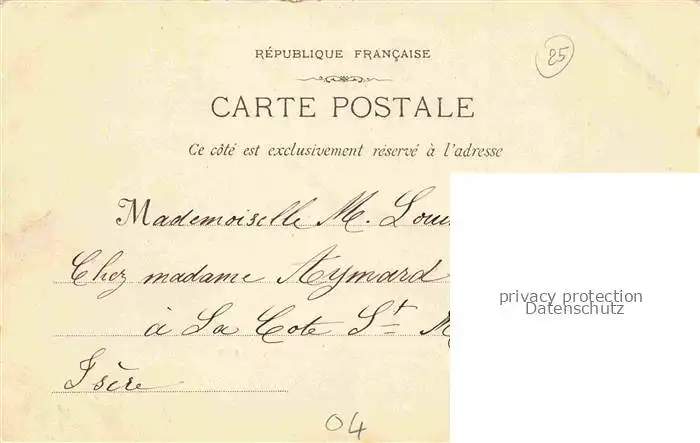 RÉPUBLIQUE FRANÇAISE
25
CARTE POSTALE
Ce côté est exclusivement réservé à l'adresse
Mademoiselle M.
Chez madame Aymard
à La Cote St
Isère
privacy protection
Datenschutz
04